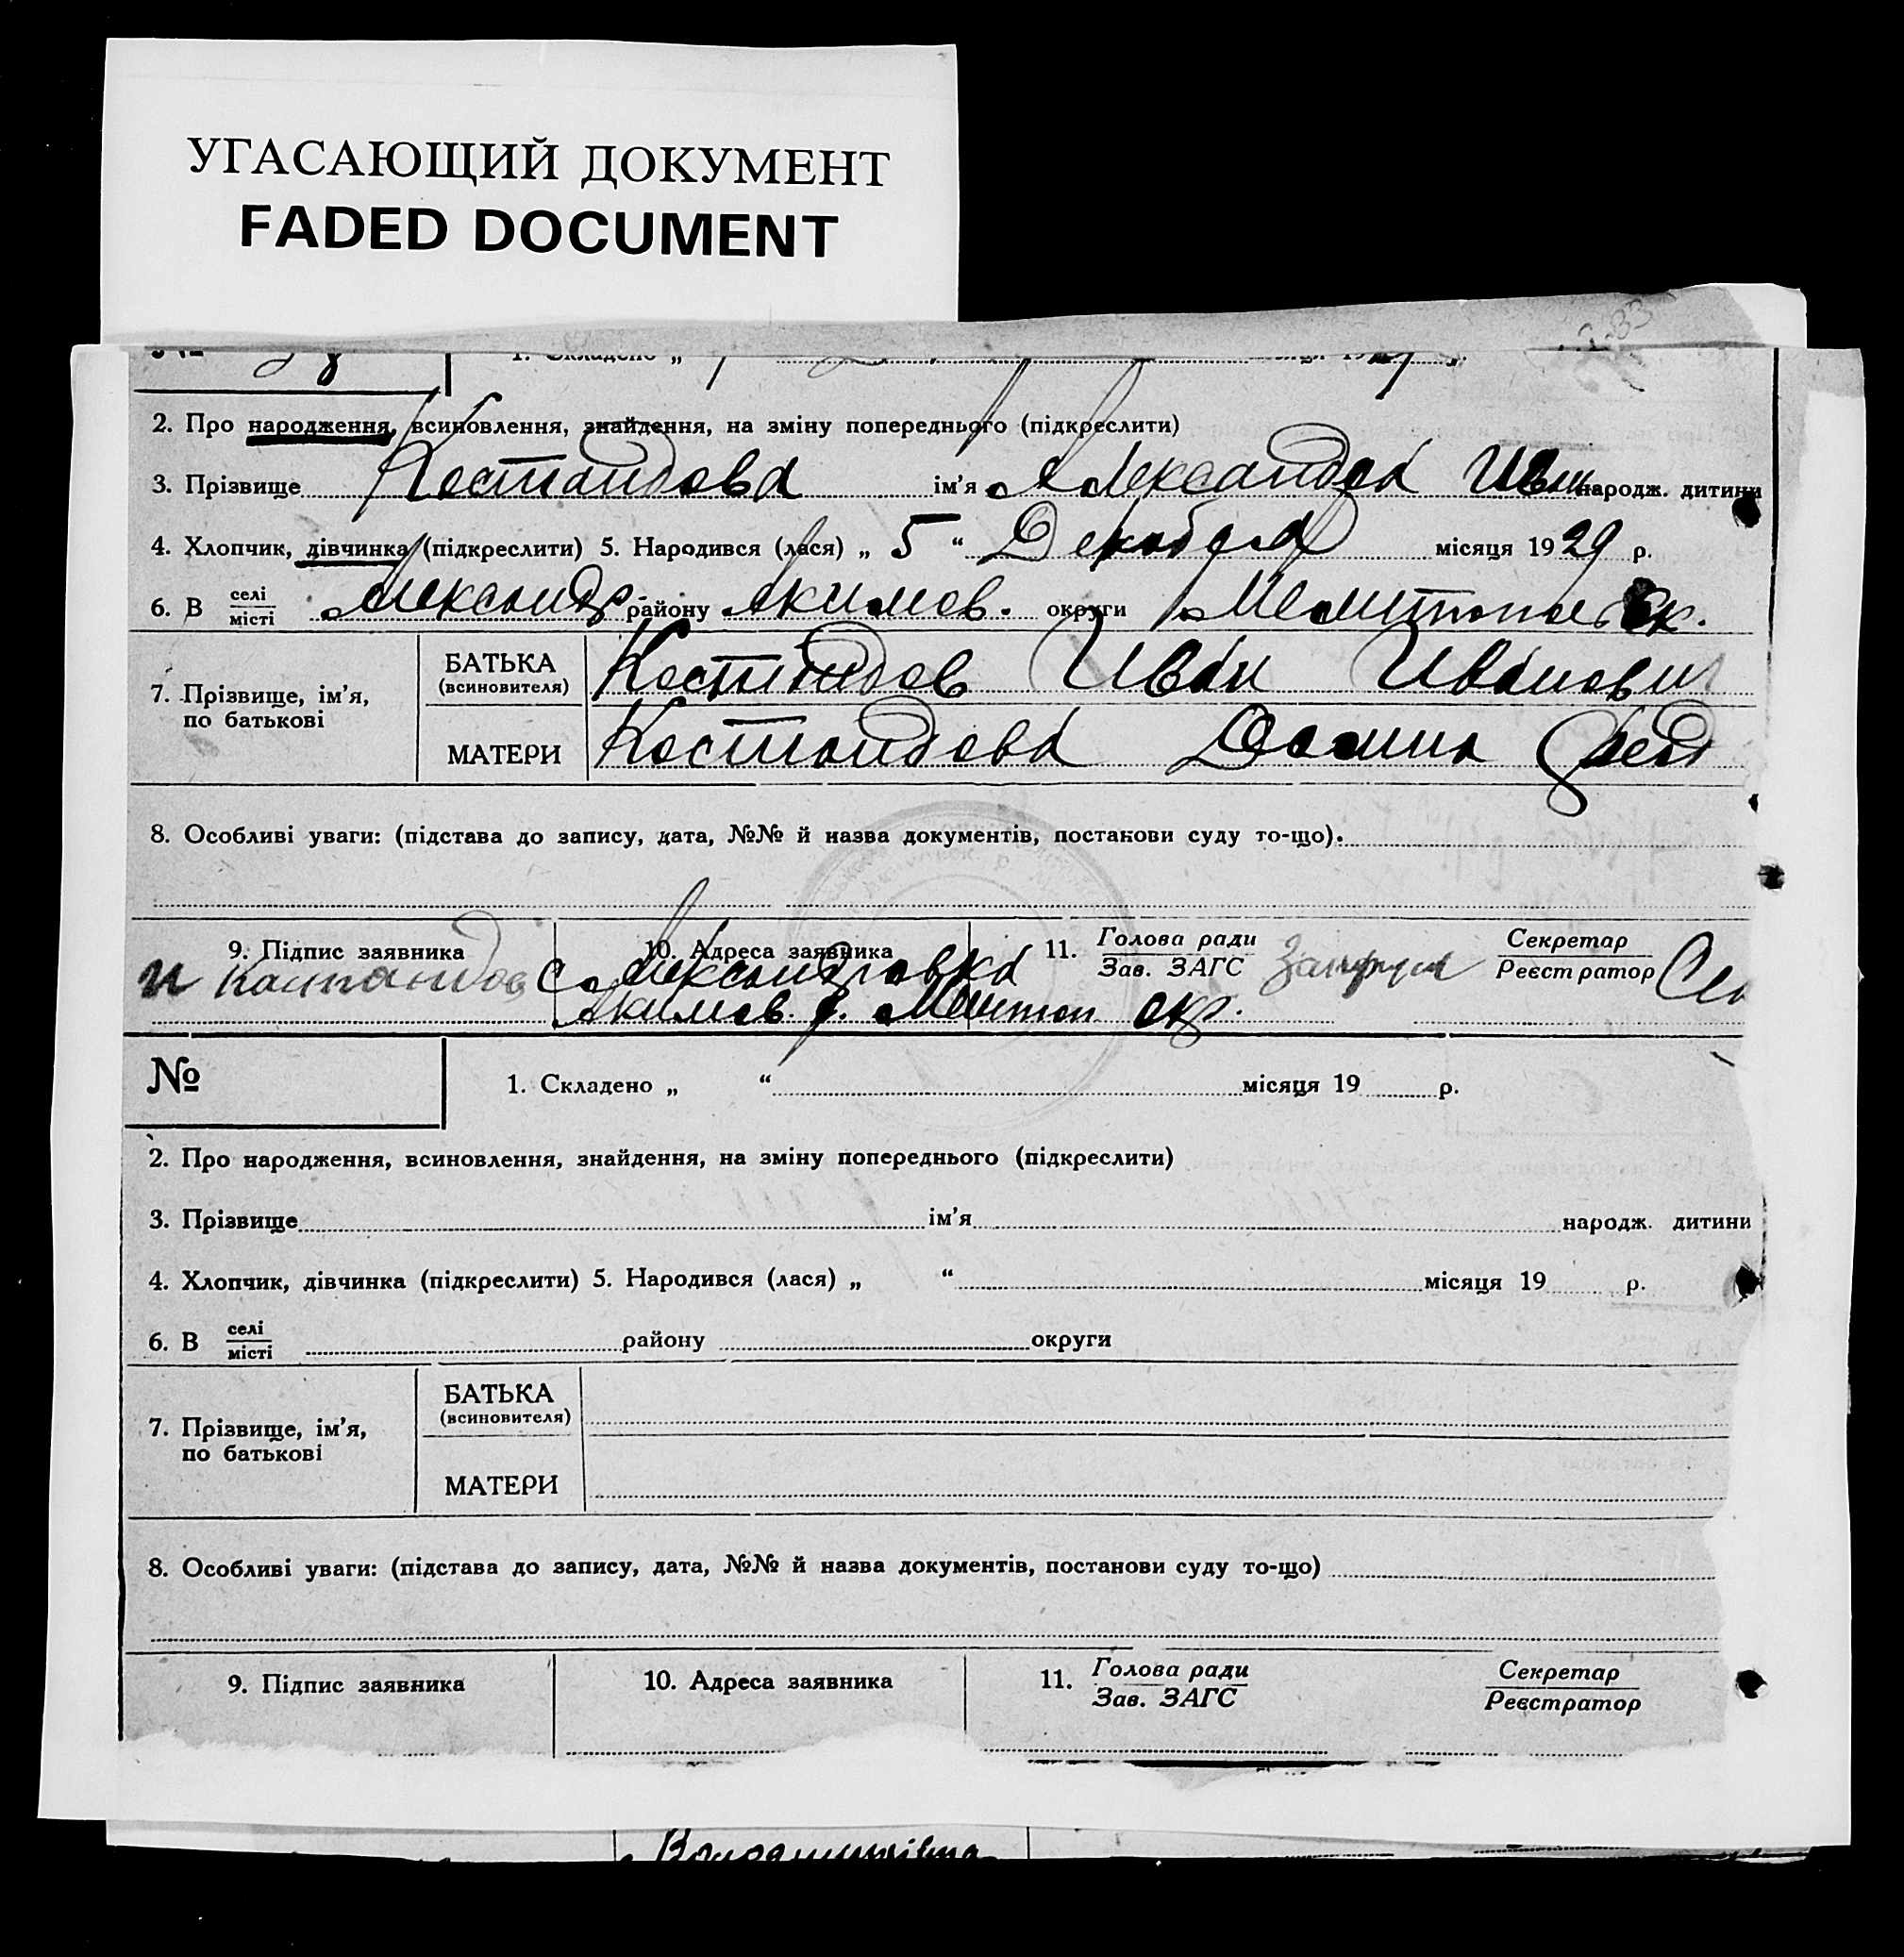 УГАСАЮЩИЙ ДОКУМЕНТ
FADED DOCUMENT
1. Складено „
2. Про народження, всиновлення, знайдення, на зміну попереднього (підкреслити)
3. Прізвище Костандова ім'я Александра Иван народж. дитини
4. Хлопчик, дівчинка (підкреслити) 5. Народився (лася) „ 5 “ Декабря місяця 1929 р.
6. В селі/місті Александр району Акимов. округи Мелитопольск.
7. Прізвище, ім'я, по батькові
БАТЬКА (всиновителя) Костандов Иван Иванович
МАТЕРИ Костандова Домна Фед
8. Особливі уваги: (підстава до запису, дата, №№ й назва документів, постанови суду то-що).
9. Підпис заявника 10. Адреса заявника 11. Голова ради/Зав. ЗАГС Секретар/Реєстратор
и Костандов с. Александровка
Акимов. р. Мелитоп. окр.
№
1. Складено „ “ місяця 19 р.
2. Про народження, всиновлення, знайдення, на зміну попереднього (підкреслити)
3. Прізвище ім'я народж. дитини
4. Хлопчик, дівчинка (підкреслити) 5. Народився (лася) „ “ місяця 19 р.
6. В селі/місті району округи
7. Прізвище, ім'я, по батькові
БАТЬКА (всиновителя)
МАТЕРИ
8. Особливі уваги: (підстава до запису, дата, №№ й назва документів, постанови суду то-що)
9. Підпис заявника 10. Адреса заявника 11. Голова ради/Зав. ЗАГС Секретар/Реєстратор